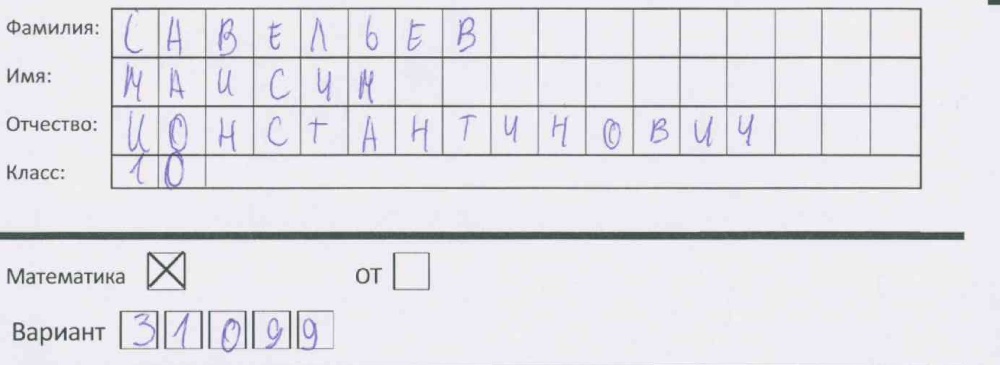 Фамилия: САВЕЛЬЕВ
Имя: МАКСИМ
Отчество: КОНСТАНТИНОВИЧ
Класс: 10
Математика ☒ ОТ ☐
Вариант 31099